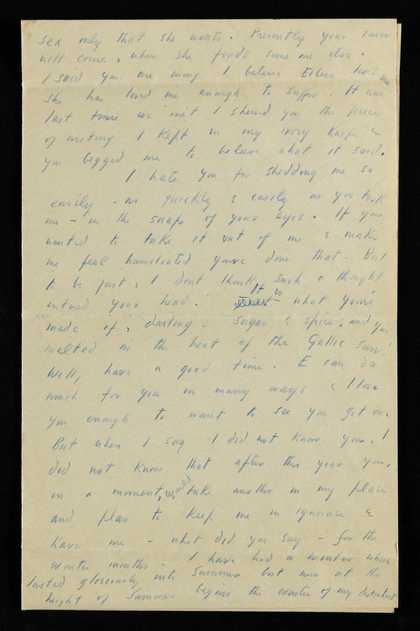 sex only that she wants. Presently your turn
will come, when she finds some one else.
I said you are wrong, I believe Eileen loves me
she has loved me enough to suffer. It was
last time we met I showed you the piece
of writing I kept in my ivory
you begged me to believe what it said.
I hate you for shedding me so
easily - as quickly & easily as you took
me - in the snap of your eyes. If you
wanted to take it out of me & make
me feel humiliated you've done that. But
to be just, I don't think such a thought
entered your head. It is what you're
made of, darling - sugar & spice, and you
melted in the heat of the Gallic sun.
Well, have a good time. E can do
much for you in many ways & I love
you enough to want to see you get on.
But when I say I did not know you, I
did not know that after this year you,
in a moment, would take another in my place
and plan to keep me in ignorance &
have me - what did you say - for the
winter months. I have had a winter which
lasted gloriously into Summer but now at the
height of Summer begins the winter of my